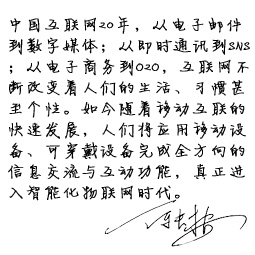 中国互联网20年，从电子邮件
到数字媒体；从即时通讯到SNS
；从电子商务到O2O，互联网不
断改变着人们的生活、习惯甚
至个性。如今随着移动互联的
快速发展，人们将应用移动设
备、可穿戴设备完成全方向的
信息交流与互动功能，真正进
入智能化物联网时代。